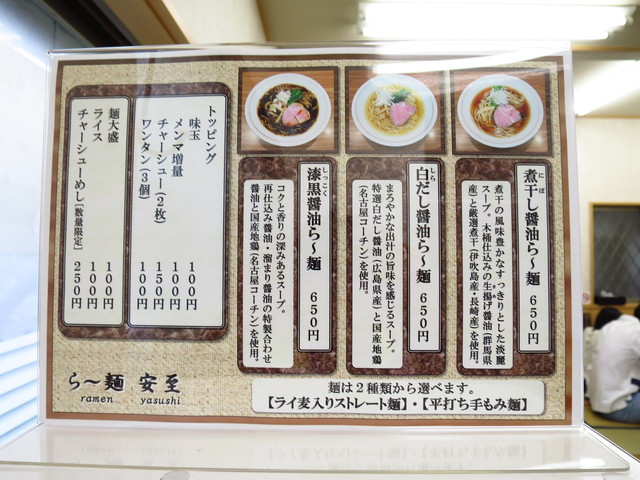 煮干し醤油ら～麺 650円
にぼ
煮干の風味豊かなすっきりとした淡麗
スープ。木桶仕込みの生揚げ醤油(群馬県
産)と厳選煮干(伊吹島産・長崎産)を使用。
白だし醤油ら～麺 650円
しろ
まろやかな出汁の旨味を感じるスープ。
特選白だし醤油(広島県産)と国産地鶏
(名古屋コーチン)を使用。
漆黒醤油ら～麺 650円
しっこく
コクと香りの深みあるスープ。
再仕込み醤油・溜まり醤油の特製合わせ
醤油と国産地鶏(名古屋コーチン)を使用。
トッピング
味玉 100円
メンマ増量 100円
チャーシュー(2枚) 150円
ワンタン(3個) 100円
麺大盛 100円
ライス 100円
チャーシューめし[数量限定] 250円
ら～麺 安至
ramen yasushi
麺は2種類から選べます。
【ライ麦入りストレート麺】・【平打ち手もみ麺】